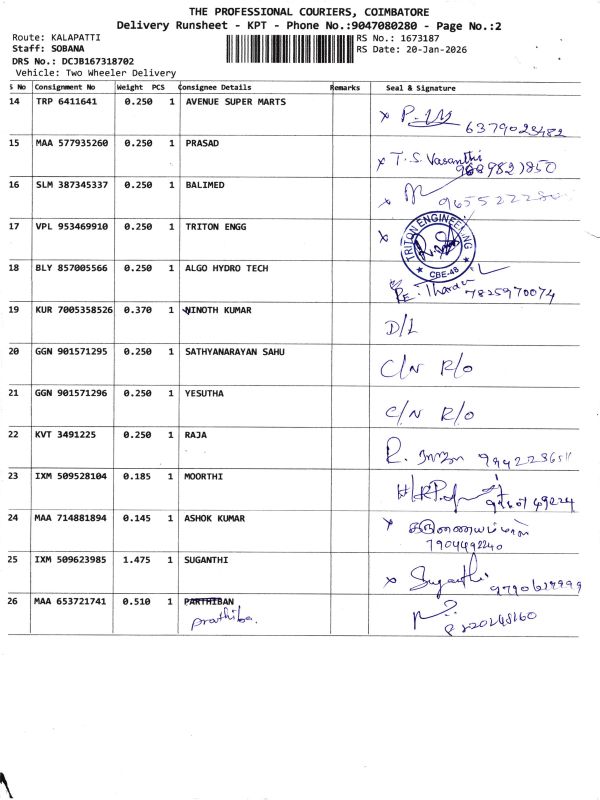 THE PROFESSIONAL COURIERS, COIMBATORE
Delivery Runsheet - KPT - Phone No.:9047080280 - Page No.:2
Route: KALAPATTI RS No.: 1673187
Staff: SOBANA RS Date: 20-Jan-2026
DRS No.: DCJB167318702
Vehicle: Two Wheeler Delivery
S No Consignment No Weight PCS Consignee Details Remarks Seal & Signature
14 TRP 6411641 0.250 1 AVENUE SUPER MARTS
6379023482
15 MAA 577935260 0.250 1 PRASAD
x T.S. Vasanthi
16 SLM 387345337 0.250 1 BALIMED
17 VPL 953469910 0.250 1 TRITON ENGG
x TRITON ENGINEERING CBE-48
18 BLY 857005566 0.250 1 ALGO HYDRO TECH
7825970074
19 KUR 7005358526 0.370 1 VINOTH KUMAR
D/L
20 GGN 901571295 0.250 1 SATHYANARAYAN SAHU
C/N R/O
21 GGN 901571296 0.250 1 YESUTHA
C/N R/O
22 KVT 3491225 0.250 1 RAJA
R. ராஜா
23 IXM 509528104 0.185 1 MOORTHI
24 MAA 714881894 0.145 1 ASHOK KUMAR
x
7904492240
25 IXM 509623985 1.475 1 SUGANTHI
x Suganthi
26 MAA 653721741 0.510 1 PARTHIBAN
prathiba.
8220248160